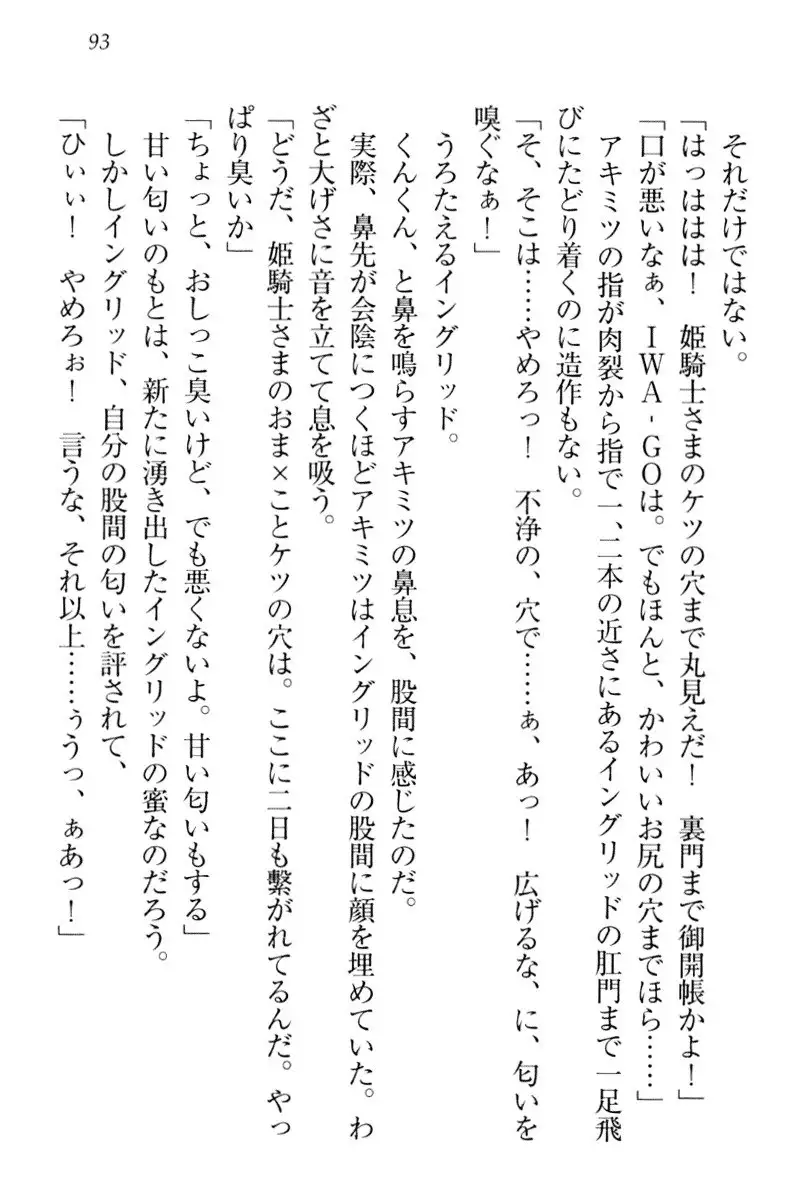 93
それだけではない。
「はっははは！　姫騎士さまのケツの穴まで丸見えだ！　裏門まで御開帳かよ！」
「口が悪いなぁ、ＩＷＡ‐ＧＯは。でもほんと、かわいいお尻の穴までほら……」
アキミツの指が肉裂から指で一、二本の近さにあるイングリッドの肛門まで一足飛
びにたどり着くのに造作もない。
「そ、そこは……やめろっ！　不浄の、穴で……ぁ、あっ！　広げるな、に、匂いを
嗅ぐなぁ！」
うろたえるイングリッド。
くんくん、と鼻を鳴らすアキミツの鼻息を、股間に感じたのだ。
実際、鼻先が会陰につくほどアキミツはイングリッドの股間に顔を埋めていた。わ
ざと大げさに音を立てて息を吸う。
「どうだ、姫騎士さまのおま×ことケツの穴は。ここに二日も繋がれてるんだ。やっ
ぱり臭いか」
「ちょっと、おしっこ臭いけど、でも悪くないよ。甘い匂いもする」
甘い匂いのもとは、新たに湧き出したイングリッドの蜜なのだろう。
しかしイングリッド、自分の股間の匂いを評されて、
「ひぃぃ！　やめろぉ！　言うな、それ以上……ぅうっ、ぁあっ！」